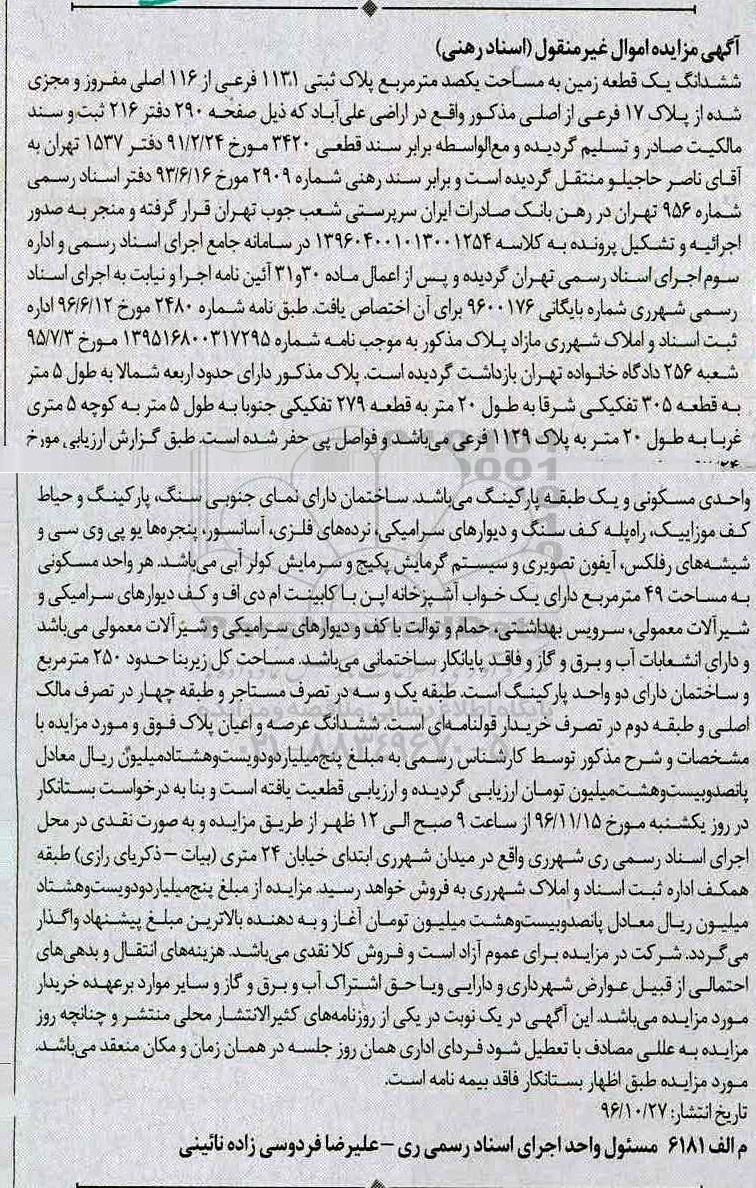 آگهی مزایده اموال غیر منقول (اسناد رهنی)
ششدانگ یک قطعه زمین به مساحت یکصد مترمربع پلاک ثبتی ۱۱۳۱ فرعی از ۱۱۶ اصلی مفروز و مجزی
شده از پلاک ۱۷ فرعی از اصلی مذکور واقع در اراضی علی‌آباد که ذیل صفحه ۲۹۰ دفتر ۲۱۶ ثبت و سند
مالکیت صادر و تسلیم گردیده و مع‌الواسطه برابر سند قطعی ۳۴۲۰ مورخ ۹۱/۲/۲۴ دفتر ۱۵۳۷ تهران به
آقای ناصر حاجیلو منتقل گردیده است و برابر سند رهنی شماره ۲۹۰۹ مورخ ۹۳/۶/۱۶ دفتر اسناد رسمی
شماره ۹۵۶ تهران در رهن بانک صادرات ایران سرپرستی شعب جوب تهران قرار گرفته و منجر به صدور
اجرائیه و تشکیل پرونده به کلاسه ۱۳۹۶۰۴۰۰۱۰۱۳۰۰۱۲۵۴ در سامانه جامع اجرای اسناد رسمی و اداره
سوم اجرای اسناد رسمی تهران گردیده و پس از اعمال ماده ۳۰و۳۱ آئین نامه اجرا و نیابت به اجرای اسناد
رسمی شهرری شماره بایگانی ۹۶۰۰۱۷۶ برای آن اختصاص یافت. طبق نامه شماره ۲۴۸۰ مورخ ۹۶/۶/۱۲ اداره
ثبت اسناد و املاک شهرری مازاد پلاک مذکور به موجب نامه شماره ۱۳۹۵۱۶۸۰۰۳۱۷۲۹۵ مورخ ۹۵/۷/۳
شعبه ۲۵۶ دادگاه خانواده تهران بازداشت گردیده است. پلاک مذکور دارای حدود اربعه شمالا به طول ۵ متر
به قطعه ۳۰۵ تفکیکی شرقا به طول ۲۰ متر به قطعه ۲۷۹ تفکیکی جنوبا به طول ۵ متر به کوچه ۵ متری
غربا به طول ۲۰ متر به پلاک ۱۱۲۹ فرعی می‌باشد و فواصل پی حفر شده است. طبق گزارش ارزیابی مورخ
واحدی مسکونی و یک طبقه پارکینگ می‌باشد. ساختمان دارای نمای جنوبی سنگ، پارکینگ و حیاط
کف موزاییک، راه‌پله کف سنگ و دیوارهای سرامیکی، نرده‌های فلزی، آسانسور، پنجره‌ها یو پی وی سی و
شیشه‌های رفلکس، آیفون تصویری و سیستم گرمایش پکیج و سرمایش کولر آبی می‌باشد. هر واحد مسکونی
به مساحت ۴۹ مترمربع دارای یک خواب آشپزخانه اپن با کابینت ام دی اف و کف دیوارهای سرامیکی و
شیرآلات معمولی، سرویس بهداشتی، حمام و توالت با کف و دیوارهای سرامیکی و شیرآلات معمولی می‌باشد
و دارای انشعابات آب و برق و گاز و فاقد پایانکار ساختمانی می‌باشد. مساحت کل زیربنا حدود ۲۵۰ مترمربع
و ساختمان دارای دو واحد پارکینگ است. طبقه یک و سه در تصرف مستاجر و طبقه چهار در تصرف مالک
اصلی و طبقه دوم در تصرف خریدار قولنامه‌ای است. ششدانگ عرصه و اعیان پلاک فوق و مورد مزایده با
مشخصات و شرح مذکور توسط کارشناس رسمی به مبلغ پنج‌میلیاردودویست‌وهشتادمیلیون ریال معادل
پانصدوبیست‌وهشت‌میلیون تومان ارزیابی گردیده و ارزیابی قطعیت یافته است و بنا به درخواست بستانکار
در روز یکشنبه مورخ ۹۶/۱۱/۱۵ از ساعت ۹ صبح الی ۱۲ ظهر از طریق مزایده و به صورت نقدی در محل
اجرای اسناد رسمی ری شهرری واقع در میدان شهرری ابتدای خیابان ۲۴ متری (بیات – ذکریای رازی) طبقه
همکف اداره ثبت اسناد و املاک شهرری به فروش خواهد رسید. مزایده از مبلغ پنج‌میلیاردودویست‌وهشتاد
میلیون ریال معادل پانصدوبیست‌وهشت میلیون تومان آغاز و به دهنده بالاترین مبلغ پیشنهاد واگذار
می‌گردد. شرکت در مزایده برای عموم آزاد است و فروش کلا نقدی می‌باشد. هزینه‌های انتقال و بدهی‌های
احتمالی از قبیل عوارض شهرداری و دارایی ویا حق اشتراک آب و برق و گاز و سایر موارد برعهده خریدار
مورد مزایده می‌باشد. این آگهی در یک نوبت در یکی از روزنامه‌های کثیرالانتشار محلی منتشر و چنانچه روز
مزایده به عللی مصادف با تعطیل شود فردای اداری همان روز جلسه در همان زمان و مکان منعقد می‌باشد.
مورد مزایده طبق اظهار بستانکار فاقد بیمه نامه است.
تاریخ انتشار: ۹۶/۱۰/۲۷
م الف ۶۱۸۱ مسئول واحد اجرای اسناد رسمی ری – علیرضا فردوسی زاده نائینی